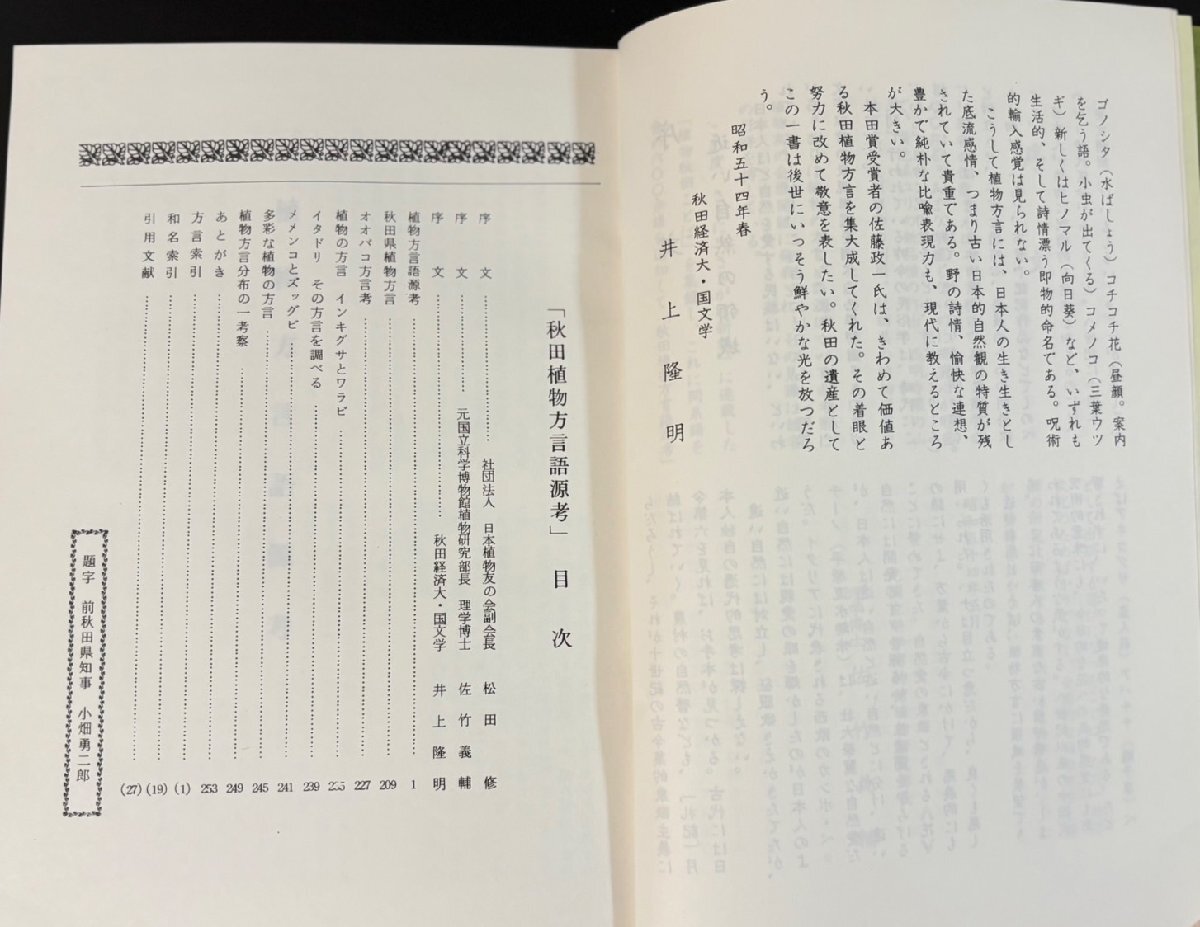 ゴノシタ（水ばしょう）コチコチ花（昼顔。案内
を乞う語。小虫が出てくる）コメノコ（三葉ウツ
ギ）新しくはヒノマル（向日葵）など、いずれも
生活的、そして詩情漂う即物的命名である。呪術
的輸入感覚は見られない。
こうして植物方言には、日本人の生き生きとし
た底流感情、つまり古い日本的自然観の特質が残
されていて貴重である。野の詩情、愉快な連想、
豊かで純朴な比喩表現力も、現代に教えるところ
が大きい。
本田賞受賞者の佐藤政一氏は、きわめて価値あ
る秋田植物方言を集大成してくれた。その着眼と
努力に改めて敬意を表したい。秋田の遺産として
この一書は後世にいっそう鮮やかな光を放つだろ
う。
昭和五十四年春
秋田経済大・国文学
井上隆明
「秋田植物方言語源考」 目次
序文 社団法人 日本植物友の会副会長 松田修
序文 元国立科学博物館植物研究部長 理学博士 佐竹義輔
序文 秋田経済大・国文学 井上隆明
植物方言語源考 1
秋田県植物方言 209
オオバコ方言考 227
植物の方言 インキグサとワラビ 235
イタドリ その方言を調べる 239
メメンコとズッダビ 241
多彩な植物の方言 245
植物方言分布の一考察 249
あとがき 253
方言索引 (1)
和名索引 (19)
引用文献 (27)
題字 前秋田県知事 小畑勇二郎